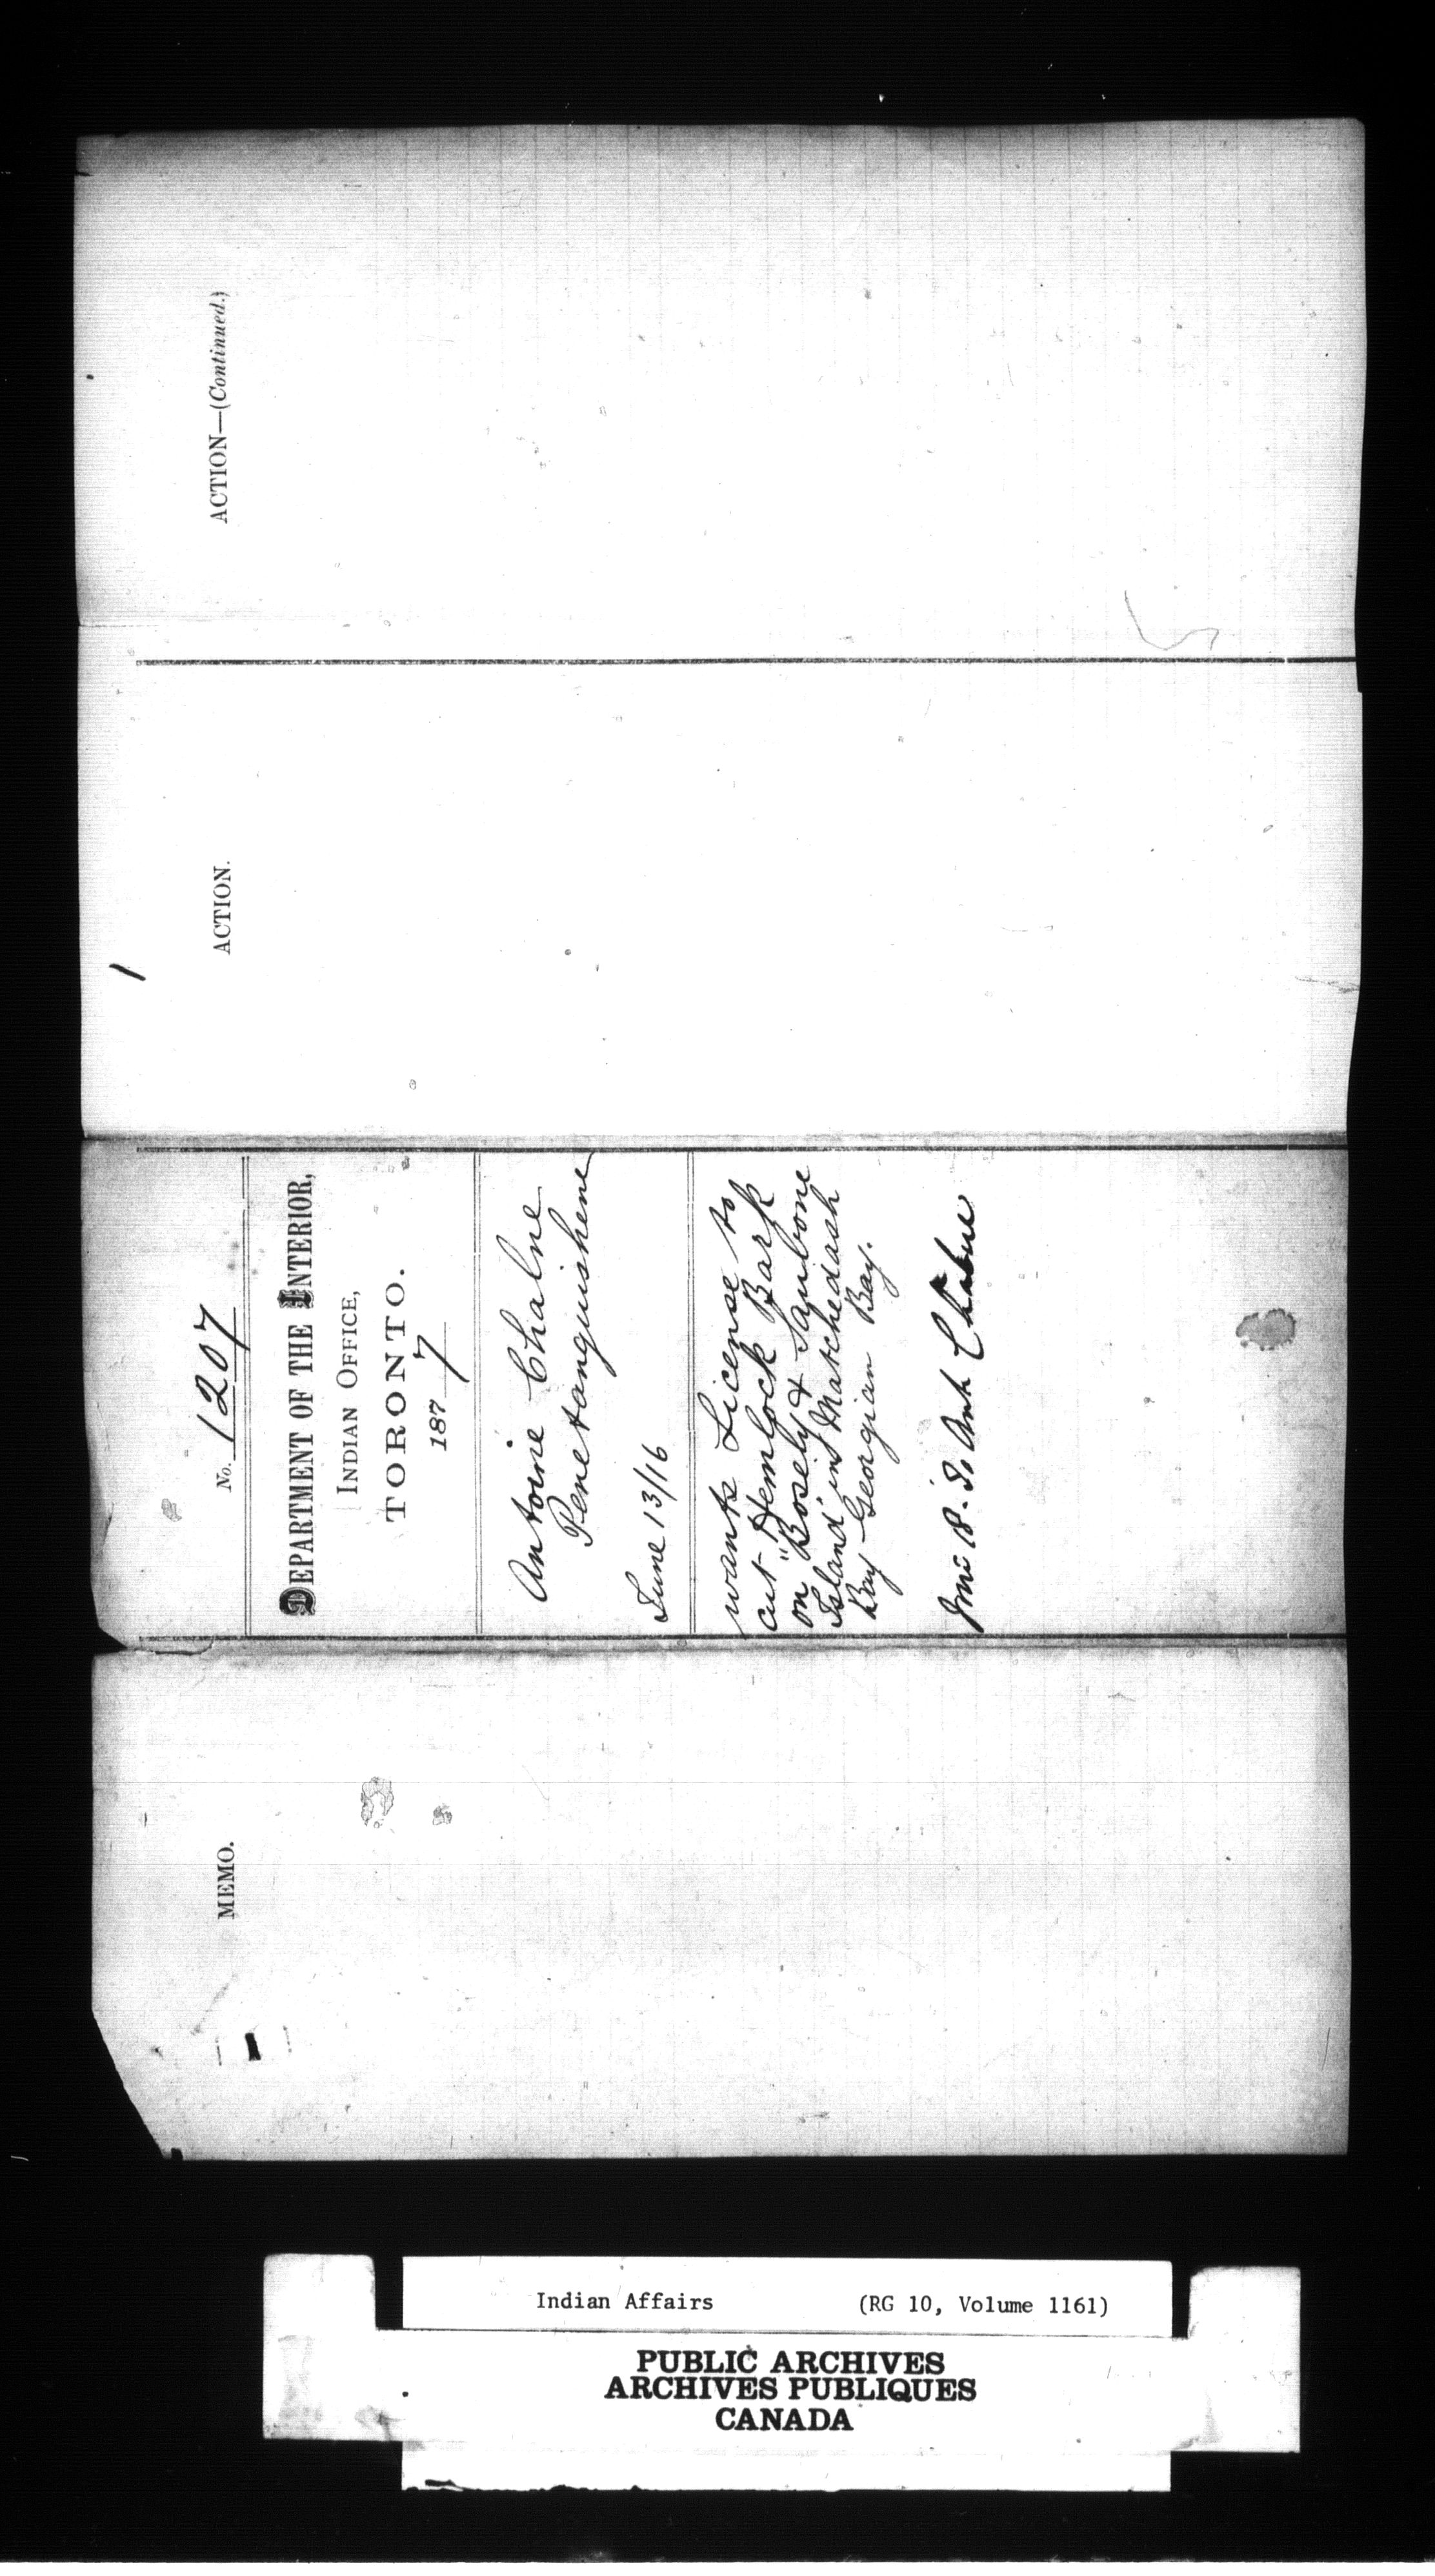 ACTION—(Continued.)
ACTION.
No. 1207
DEPARTMENT OF THE INTERIOR,
INDIAN OFFICE,
TORONTO.
1877
Antoine Chalne
Penetanguishene
June 13/16
wants License to
cut Hemlock Bark
on "Bosely & Sanbone
Island" in Matchedash
Bay Georgian Bay.
MEMO.
Indian Affairs (RG 10, Volume 1161)
PUBLIC ARCHIVES
ARCHIVES PUBLIQUES
CANADA